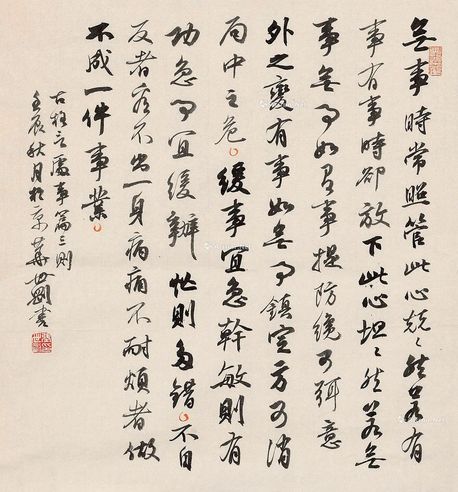 無事時常照管此心兢々然若有
事有事時卻放下此心坦々然若無
事無事如有事提防纔可弭意
外之變有事如無事鎮定方可消
局中之危。緩事宜急幹敏則有
功急事宜緩辦忙則多錯。不自
反者看不出一身病痛不耐煩者做
不成一件事業。
古格言處事篇三則
壬辰秋月於京華書